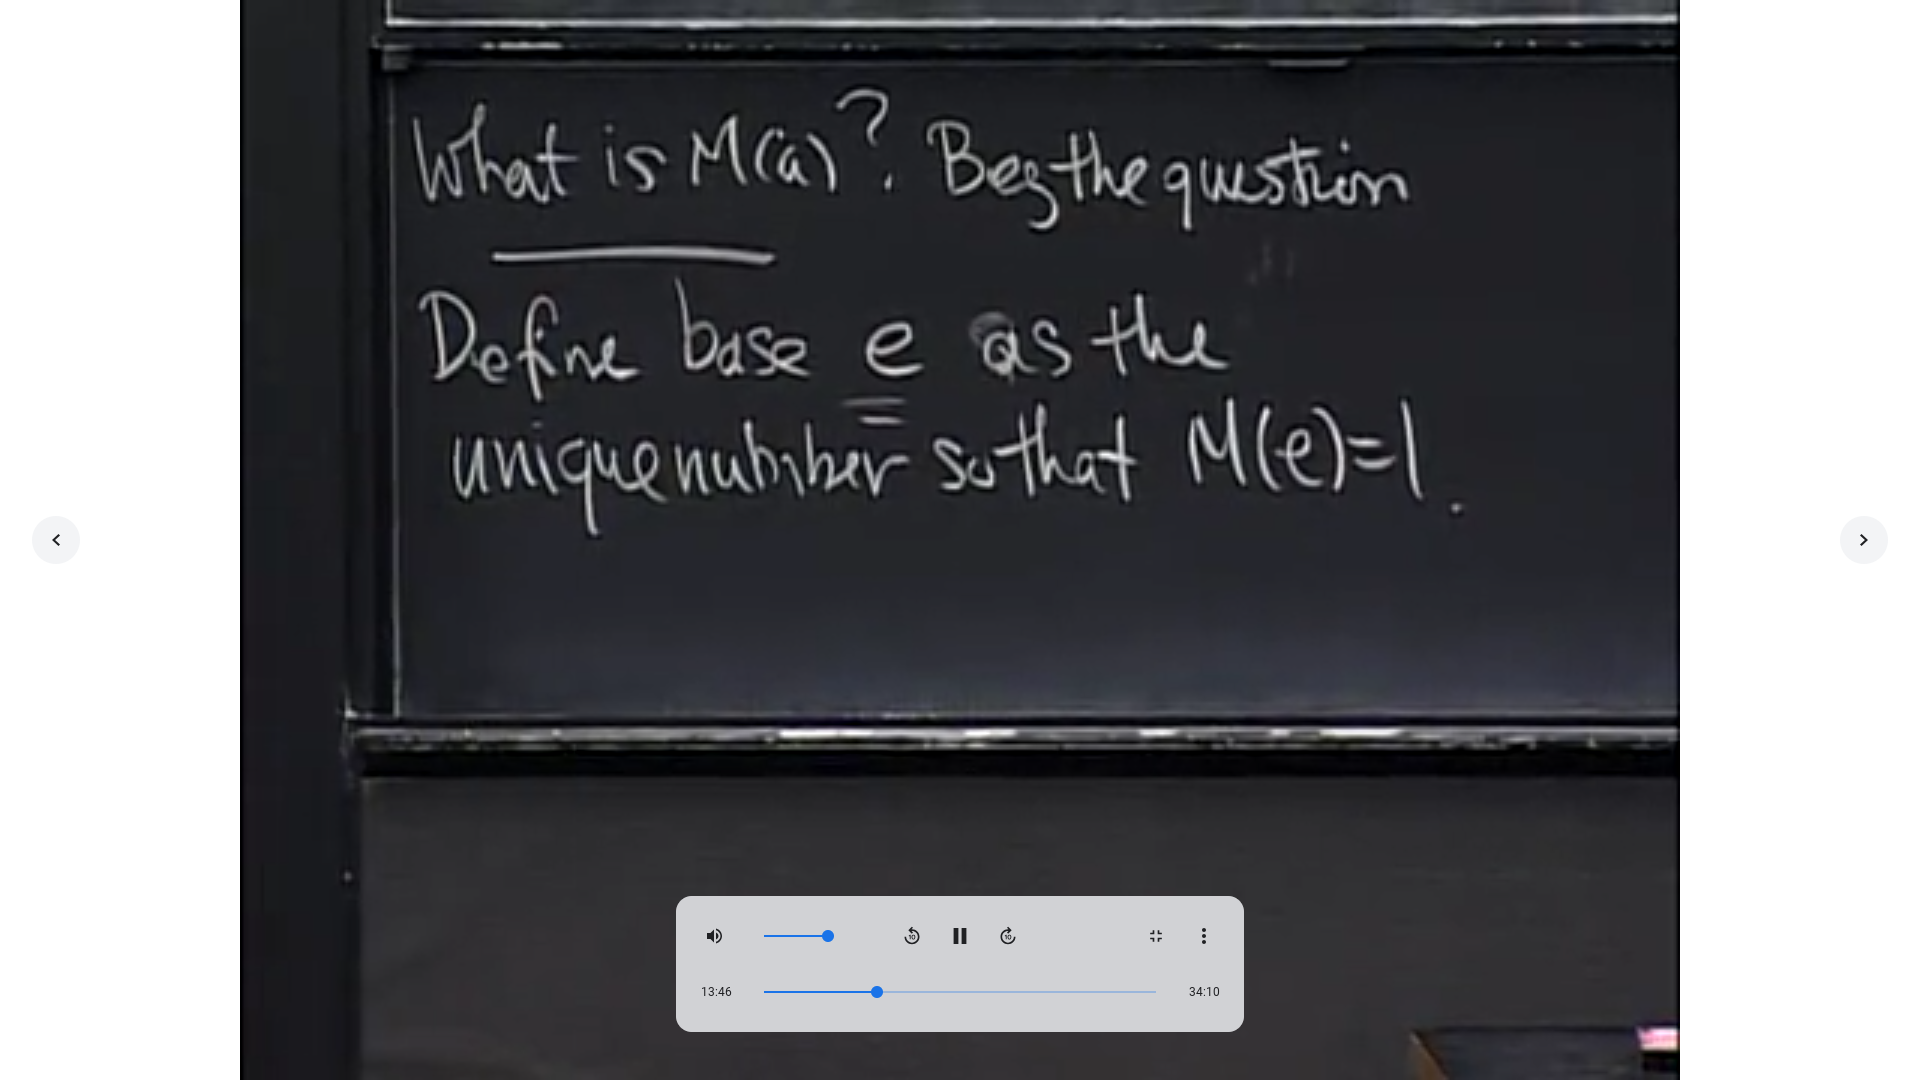 What is M(a)?. Beg the question
Define base e as the
unique number so that M(e)=1.
10
10
13:46
34:10